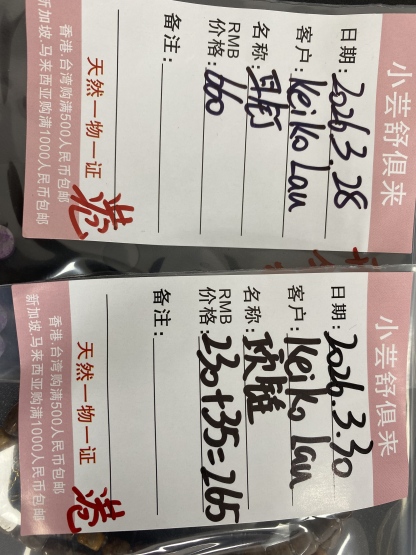 小芸舒俱来
日期: 2026.3.28
客户: Keiko Lau
名称: 耳钉
RMB
价格: 660
备注:
天然一物一证 港
香港.台湾购满500人民币包邮
新加坡.马来西亚购满1000人民币包邮
小芸舒俱来
日期: 2026.3.30
客户: Keiko Lau
名称:
RMB
价格: 230+35=265
备注:
天然一物一证 港
香港.台湾购满500人民币包邮
新加坡.马来西亚购满1000人民币包邮